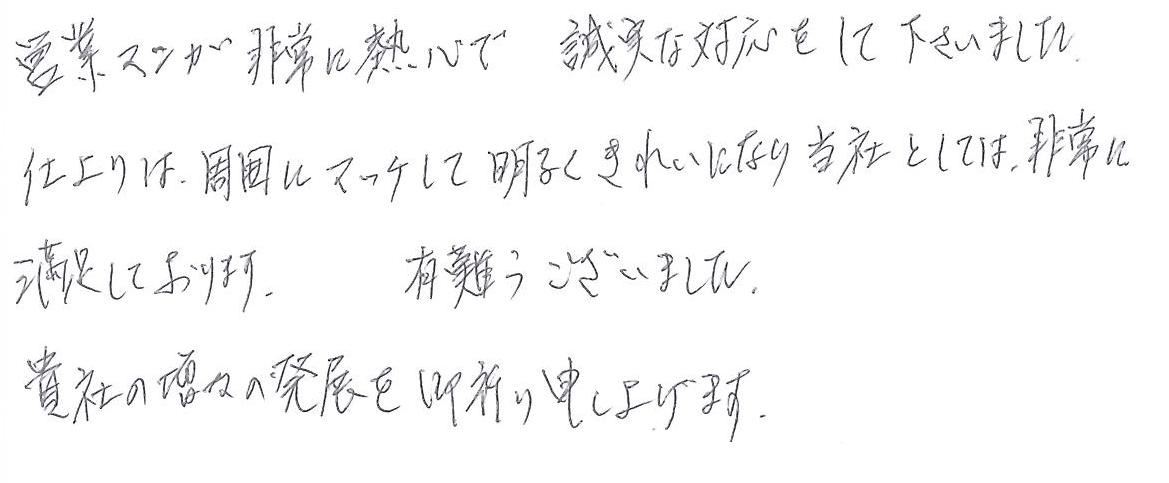 営業マンが非常に熱心で 誠実な対応をして下さいました.
仕上りは.周囲にマッチして明るくきれいになり当社としては.非常に
満足しております. 有難うございました.
貴社の増々の発展を御祈り申し上げます.